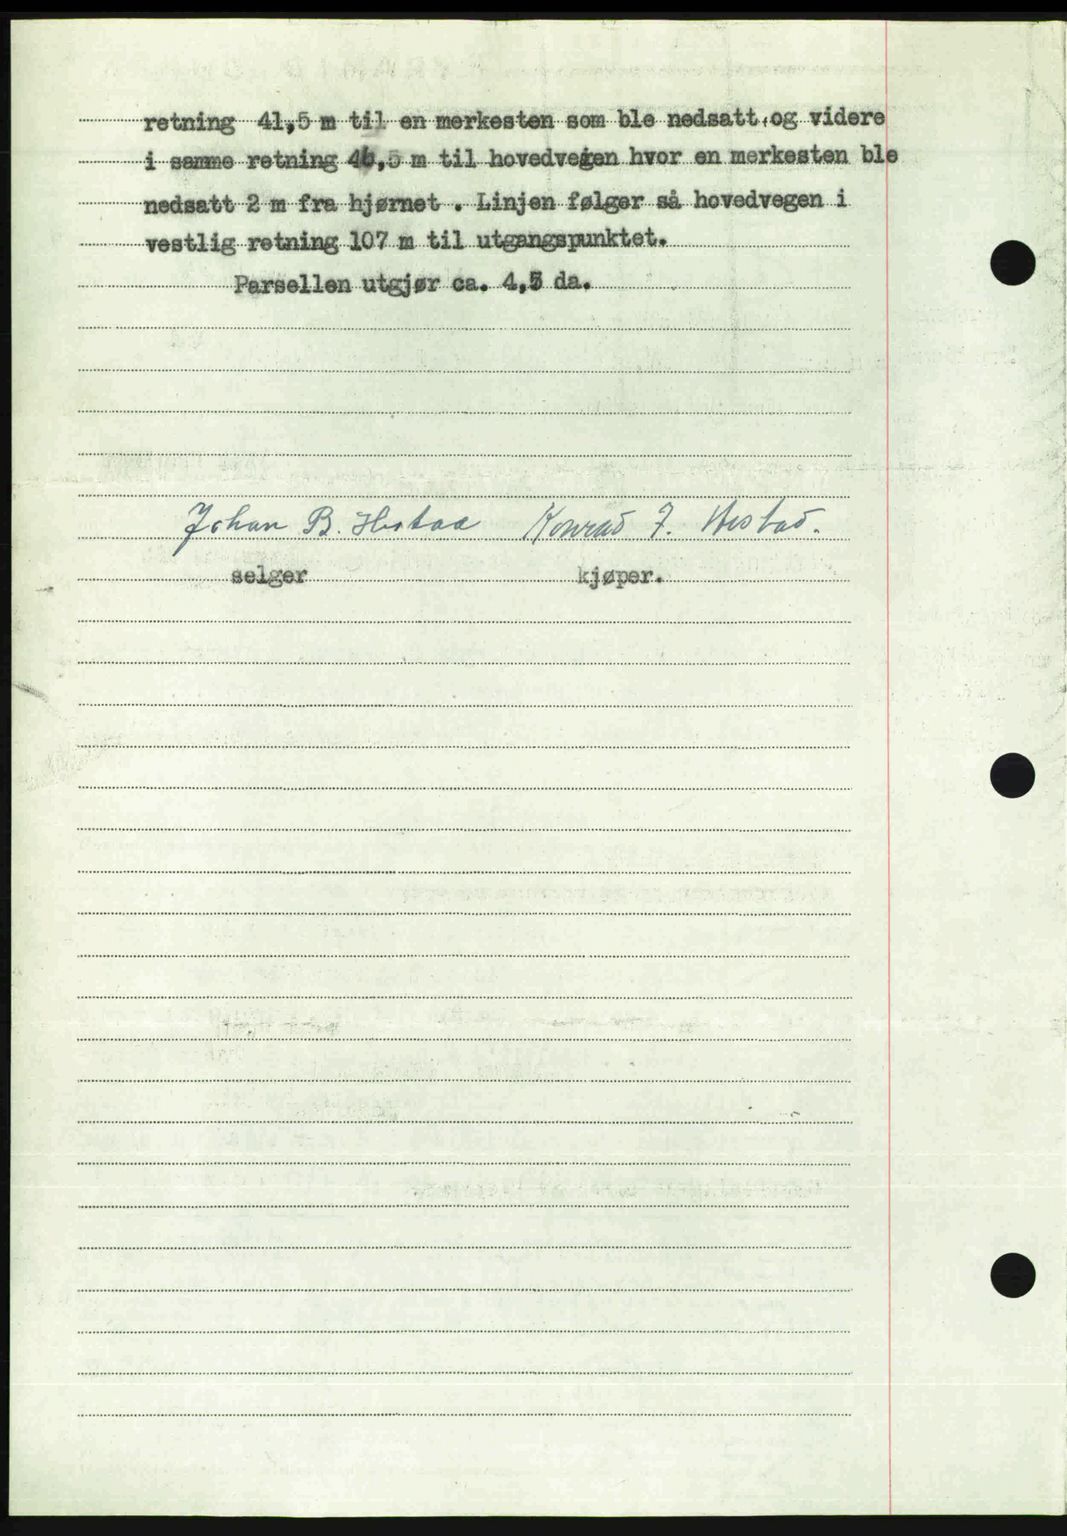 retning 41,5 m til en merkesten som ble nedsatt, og videre
i samme retning 46,5 m til hovedvegen hvor en merkesten ble
nedsatt 2 m fra hjørnet . Linjen følger så hovedvegen i
vestlig retning 107 m til utgangspunktet.
Parsellen utgjør ca. 4,5 da.
Johan B. Hestad Konrad J. Hestad.
selger kjøper.